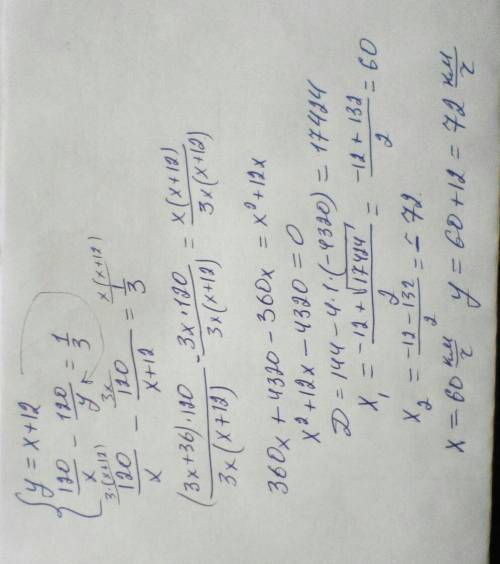 { y = x + 12
120/x - 120/y = 1/3
3·(x+12) 120/x - 3x 120/(x+12) = x(x+12) 1/3
(3x+36)·120/3x(x+12) - 3x·120/3x(x+12) = x(x+12)/3x(x+12)
360x + 4320 - 360x = x² + 12x
x² + 12x - 4320 = 0
D = 144 - 4·1·(-4320) = 17424
x₁ = (-12 + √17424)/2 = (-12 + 132)/2 = 60
x₂ = (-12 - 132)/2 = -72
x = 60 км/ч y = 60 + 12 = 72 км/ч